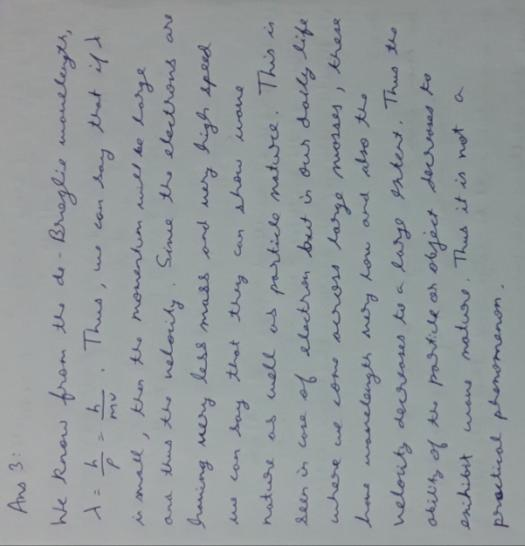 Ans 3:
We know from the de-Broglie wavelength,
λ = h/p = h/mv. Thus, we can say that if λ
is small, then the momentum will be large
and thus the velocity. Since the electrons are
having very less mass and very high speed
we can say that they can show wave
nature as well as particle nature. This is
seen in case of electron but in our daily life
where we come across large masses, these
have wavelength very low and also the
velocity decreases to a large extent. Thus the
ability of the particle or object decreases to
exhibit wave nature. Thus it is not a
practical phenomenon.